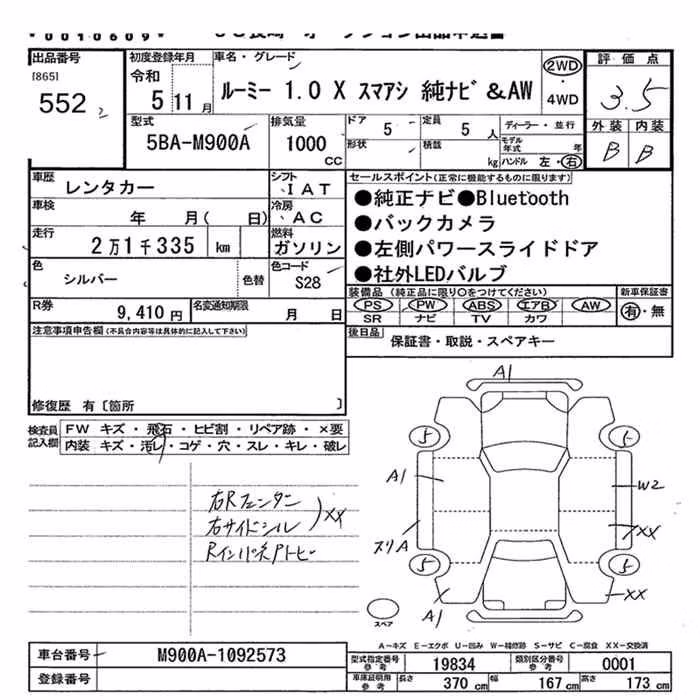 *0010609*
出品番号
[865]
552 2
初度登録年月
令和
5 11月
車名・グレード
ルーミー 1.0 X スマアシ 純ナビ &AW
2WD
4WD
評価点
3.5
外装 内装
B B
型式
5BA-M900A
排気量
1000 CC
ドア 5
形状
定員 5 人
積載 kg
ディーラー・並行
モデル年式 年
ハンドル 左・右
車歴 レンタカー
車検 年 月( 日)
走行 2万1千335 km
色 シルバー 色替
シフト IAT
冷房 AC
燃料 ガソリン
色コード S28
R券 9,410円
名変通知期限 月 日
セールスポイント(正常に機能するものに限ります)
●純正ナビ●Bluetooth
●バックカメラ
●左側パワースライドドア
●社外LEDバルブ
装備品(純正品に限り○をつけてください)
PS PW ABS エアB AW
SR ナビ TV カワ
新車保証書
有・無
後日品 保証書・取説・スペアキー
注意事項申告欄(不具合内容等は具体的に記入して下さい)
修復歴 有〔箇所 〕
検査員記入欄
FW キズ・飛石・ヒビ割・リペア跡・×要
内装 キズ・汚レ・コゲ・穴・スレ・キレ・破レ
右Rフェンダー
右サイドシル
XX
A1
5
5
A1
W2
スリA
XX
5
5
A1
XX
スペア
A-キズ E-エクボ U-凹み W-補修跡 S-サビ C-腐食 XX-交換済
車台番号 M900A-1092573
登録番号
型式指定番号 参考 19834
類別区分番号 参考 0001
車庫証明用 参考 長さ 370cm 幅 167cm 高さ 173cm